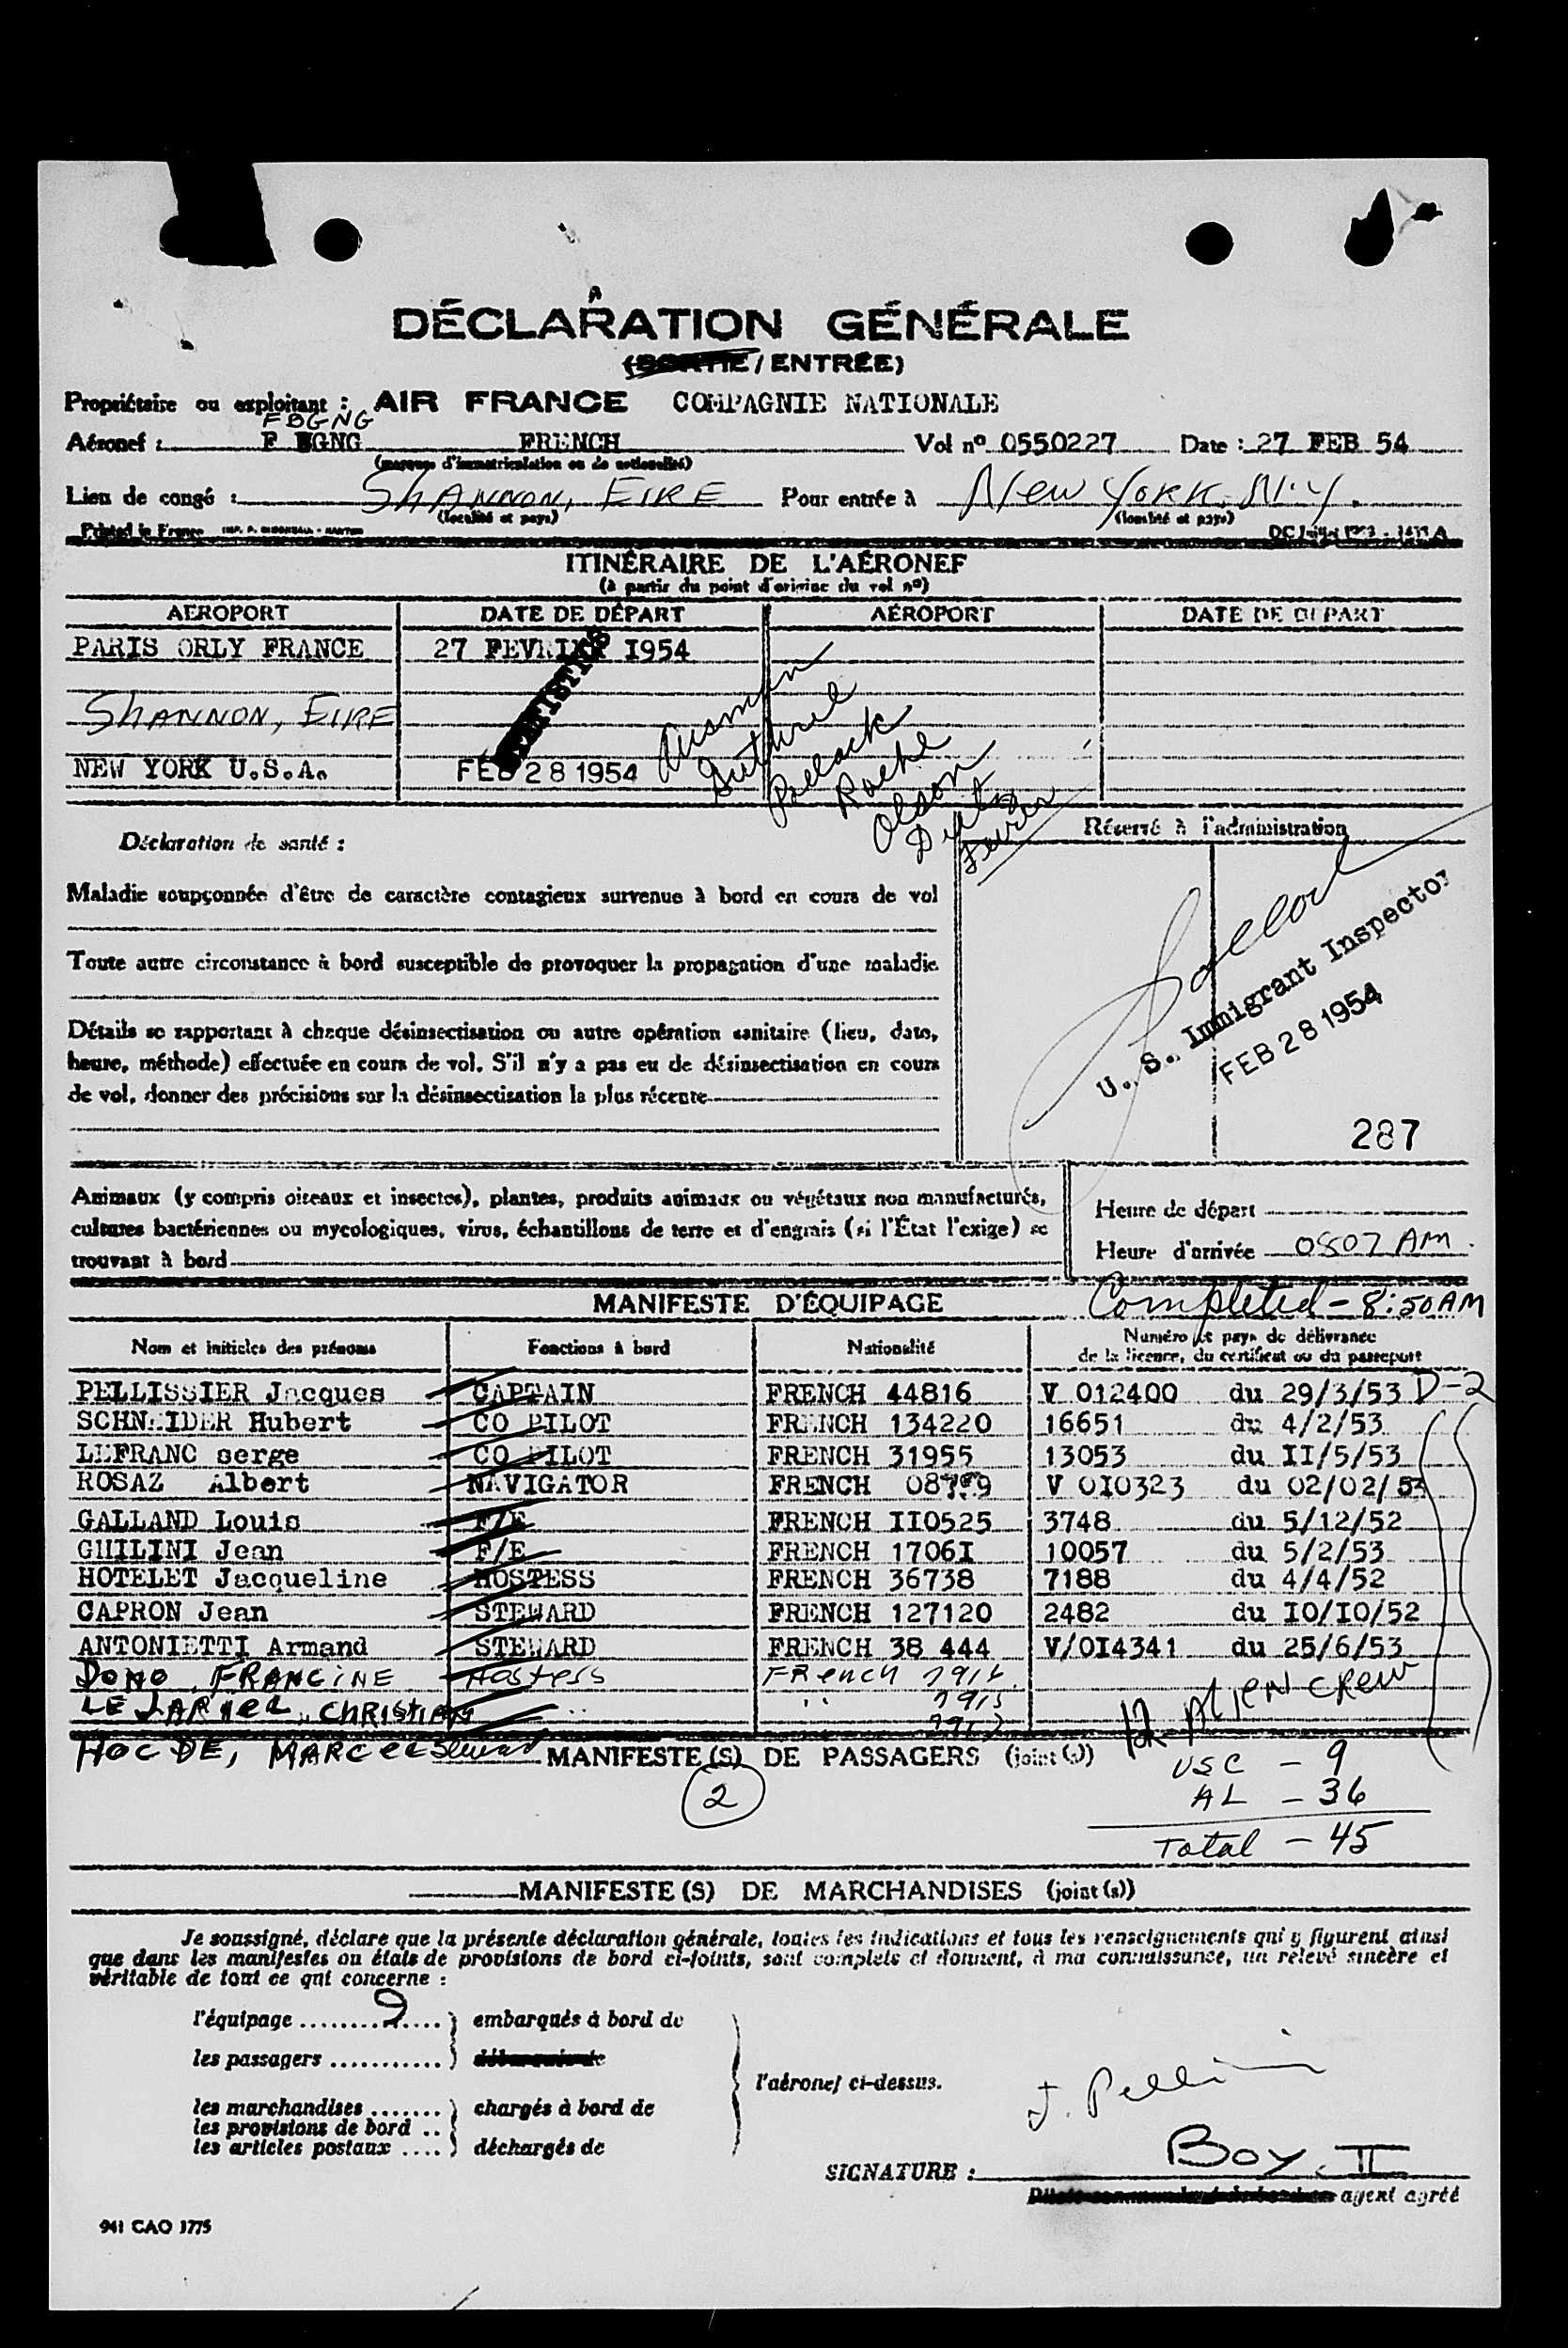 DÉCLARATION GÉNÉRALE
/ ENTRÉE)
Propriétaire ou exploitant : AIR FRANCE COMPAGNIE NATIONALE
FBGNG
Aéronef : F BGNG FRENCH Vol nº 0550227 Date : 27 FEB 54
(marques d'immatriculation ou de nationalité)
Lieu de congé : SHANNON, EIRE Pour entrée à New York. N.Y.
(localité et pays) (localité et pays)
Printed in France
ITINÉRAIRE DE L'AÉRONEF
(à partir du point d'origine du vol nº)
AÉROPORT DATE DE DÉPART AÉROPORT DATE DE DÉPART
PARIS ORLY FRANCE 27 FEVRIER I954
SHANNON, EIRE
NEW YORK U.S.A. FEB 28 1954
Guthrie
Pollack
Roche
Olson
Réservé à l'administration
Déclaration de santé :
Maladie soupçonnée d'être de caractère contagieux survenue à bord en cours de vol
Toute autre circonstance à bord susceptible de provoquer la propagation d'une maladie
Détails se rapportant à chaque désinsectisation ou autre opération sanitaire (lieu, date,
heure, méthode) effectuée en cours de vol. S'il n'y a pas eu de désinsectisation en cours
de vol, donner des précisions sur la désinsectisation la plus récente
U. S. Immigrant Inspector
FEB 28 1954
287
Animaux (y compris oiseaux et insectes), plantes, produits animaux ou végétaux non manufacturés,
cultures bactériennes ou mycologiques, virus, échantillons de terre et d'engrais (si l'État l'exige) se
trouvant à bord
Heure de départ
Heure d'arrivée 0807 AM.
Completed - 8:50 AM
MANIFESTE D'ÉQUIPAGE
Nom et initiales des prénoms Fonctions à bord Nationalité Numéro et pays de délivrance
de la licence, du certificat ou du passeport
PELLISSIER Jacques CAPTAIN FRENCH 44816 V 012400 du 29/3/53 D-2
SCHNEIDER Hubert CO PILOT FRENCH 134220 16651 du 4/2/53
LEFRANC serge CO PILOT FRENCH 31955 13053 du II/5/53
ROSAZ Albert NAVIGATOR FRENCH V OI0323 du 02/02/53
GALLAND Louis F/E FRENCH II0525 3748 du 5/12/52
GHILINI Jean F/E FRENCH 1706I 10057 du 5/2/53
HOTELET Jacqueline HOSTESS FRENCH 36738 7188 du 4/4/52
CAPRON Jean STEWARD FRENCH 127120 2482 du IO/IO/52
ANTONIETTI Armand STEWARD FRENCH 38 444 V/OI4341 du 25/6/53
FRANCINE Hostess French
CHRISTIAN
12 ALIEN CREW
HOCDE, MARCEL Steward MANIFESTE (S) DE PASSAGERS (joint (s))
2
USC - 9
AL - 36
Total - 45
MANIFESTE (S) DE MARCHANDISES (joint (s))
Je soussigné, déclare que la présente déclaration générale, toutes les indications et tous les renseignements qui y figurent ainsi
que dans les manifestes ou états de provisions de bord ci-joints, sont complets et donnent, à ma connaissance, un relevé sincère et
véritable de tout ce qui concerne :
l'équipage ........ 9 .... } embarqués à bord de
les passagers ............ }
l'aéronef ci-dessus.
les marchandises ....... } chargés à bord de
les provisions de bord ..
les articles postaux .... } déchargés de
SIGNATURE : Boy. II
agent agréé
941 CAO 1775